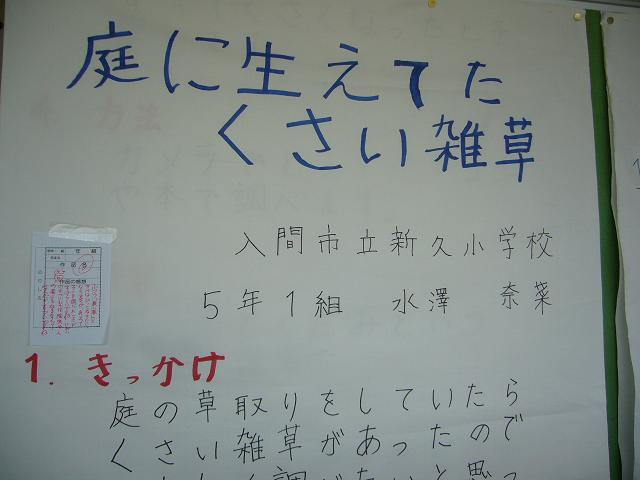 庭に生えてた
くさい雑草
入間市立新久小学校
5年1組 水澤 奈菜
作品の感想
1. きっかけ
庭の草取りをしていたら
くさい雑草があったので